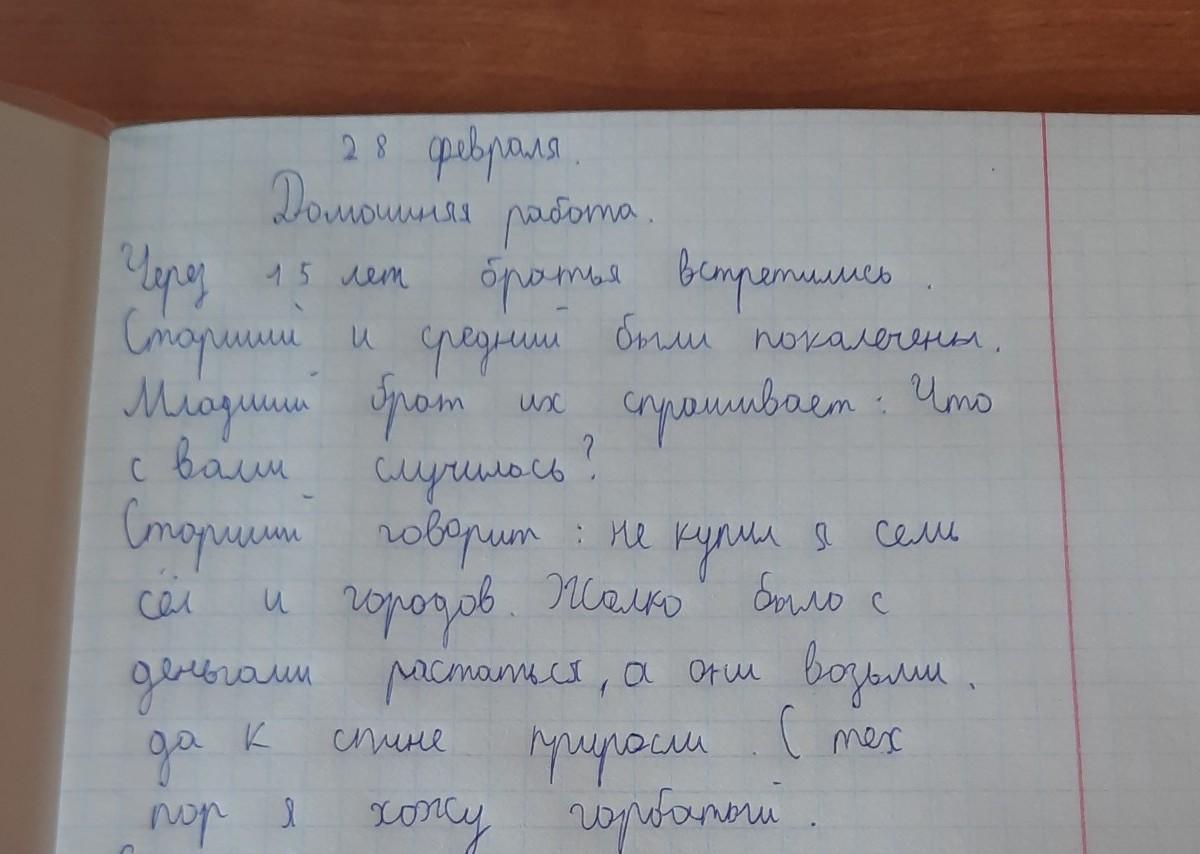 28 февраля.
Домошняя работа.
Через 15 лет братья встретились.
Старший и средний были покалечены.
Младший брат их спрашивает: Что
с вами случилось?
Старший говорит: не купил я семь
сёл и городов. Жалко было с
деньгами растаться, а они возьми.
да к спине прирасли. С тех
пор я хожу горбатый.